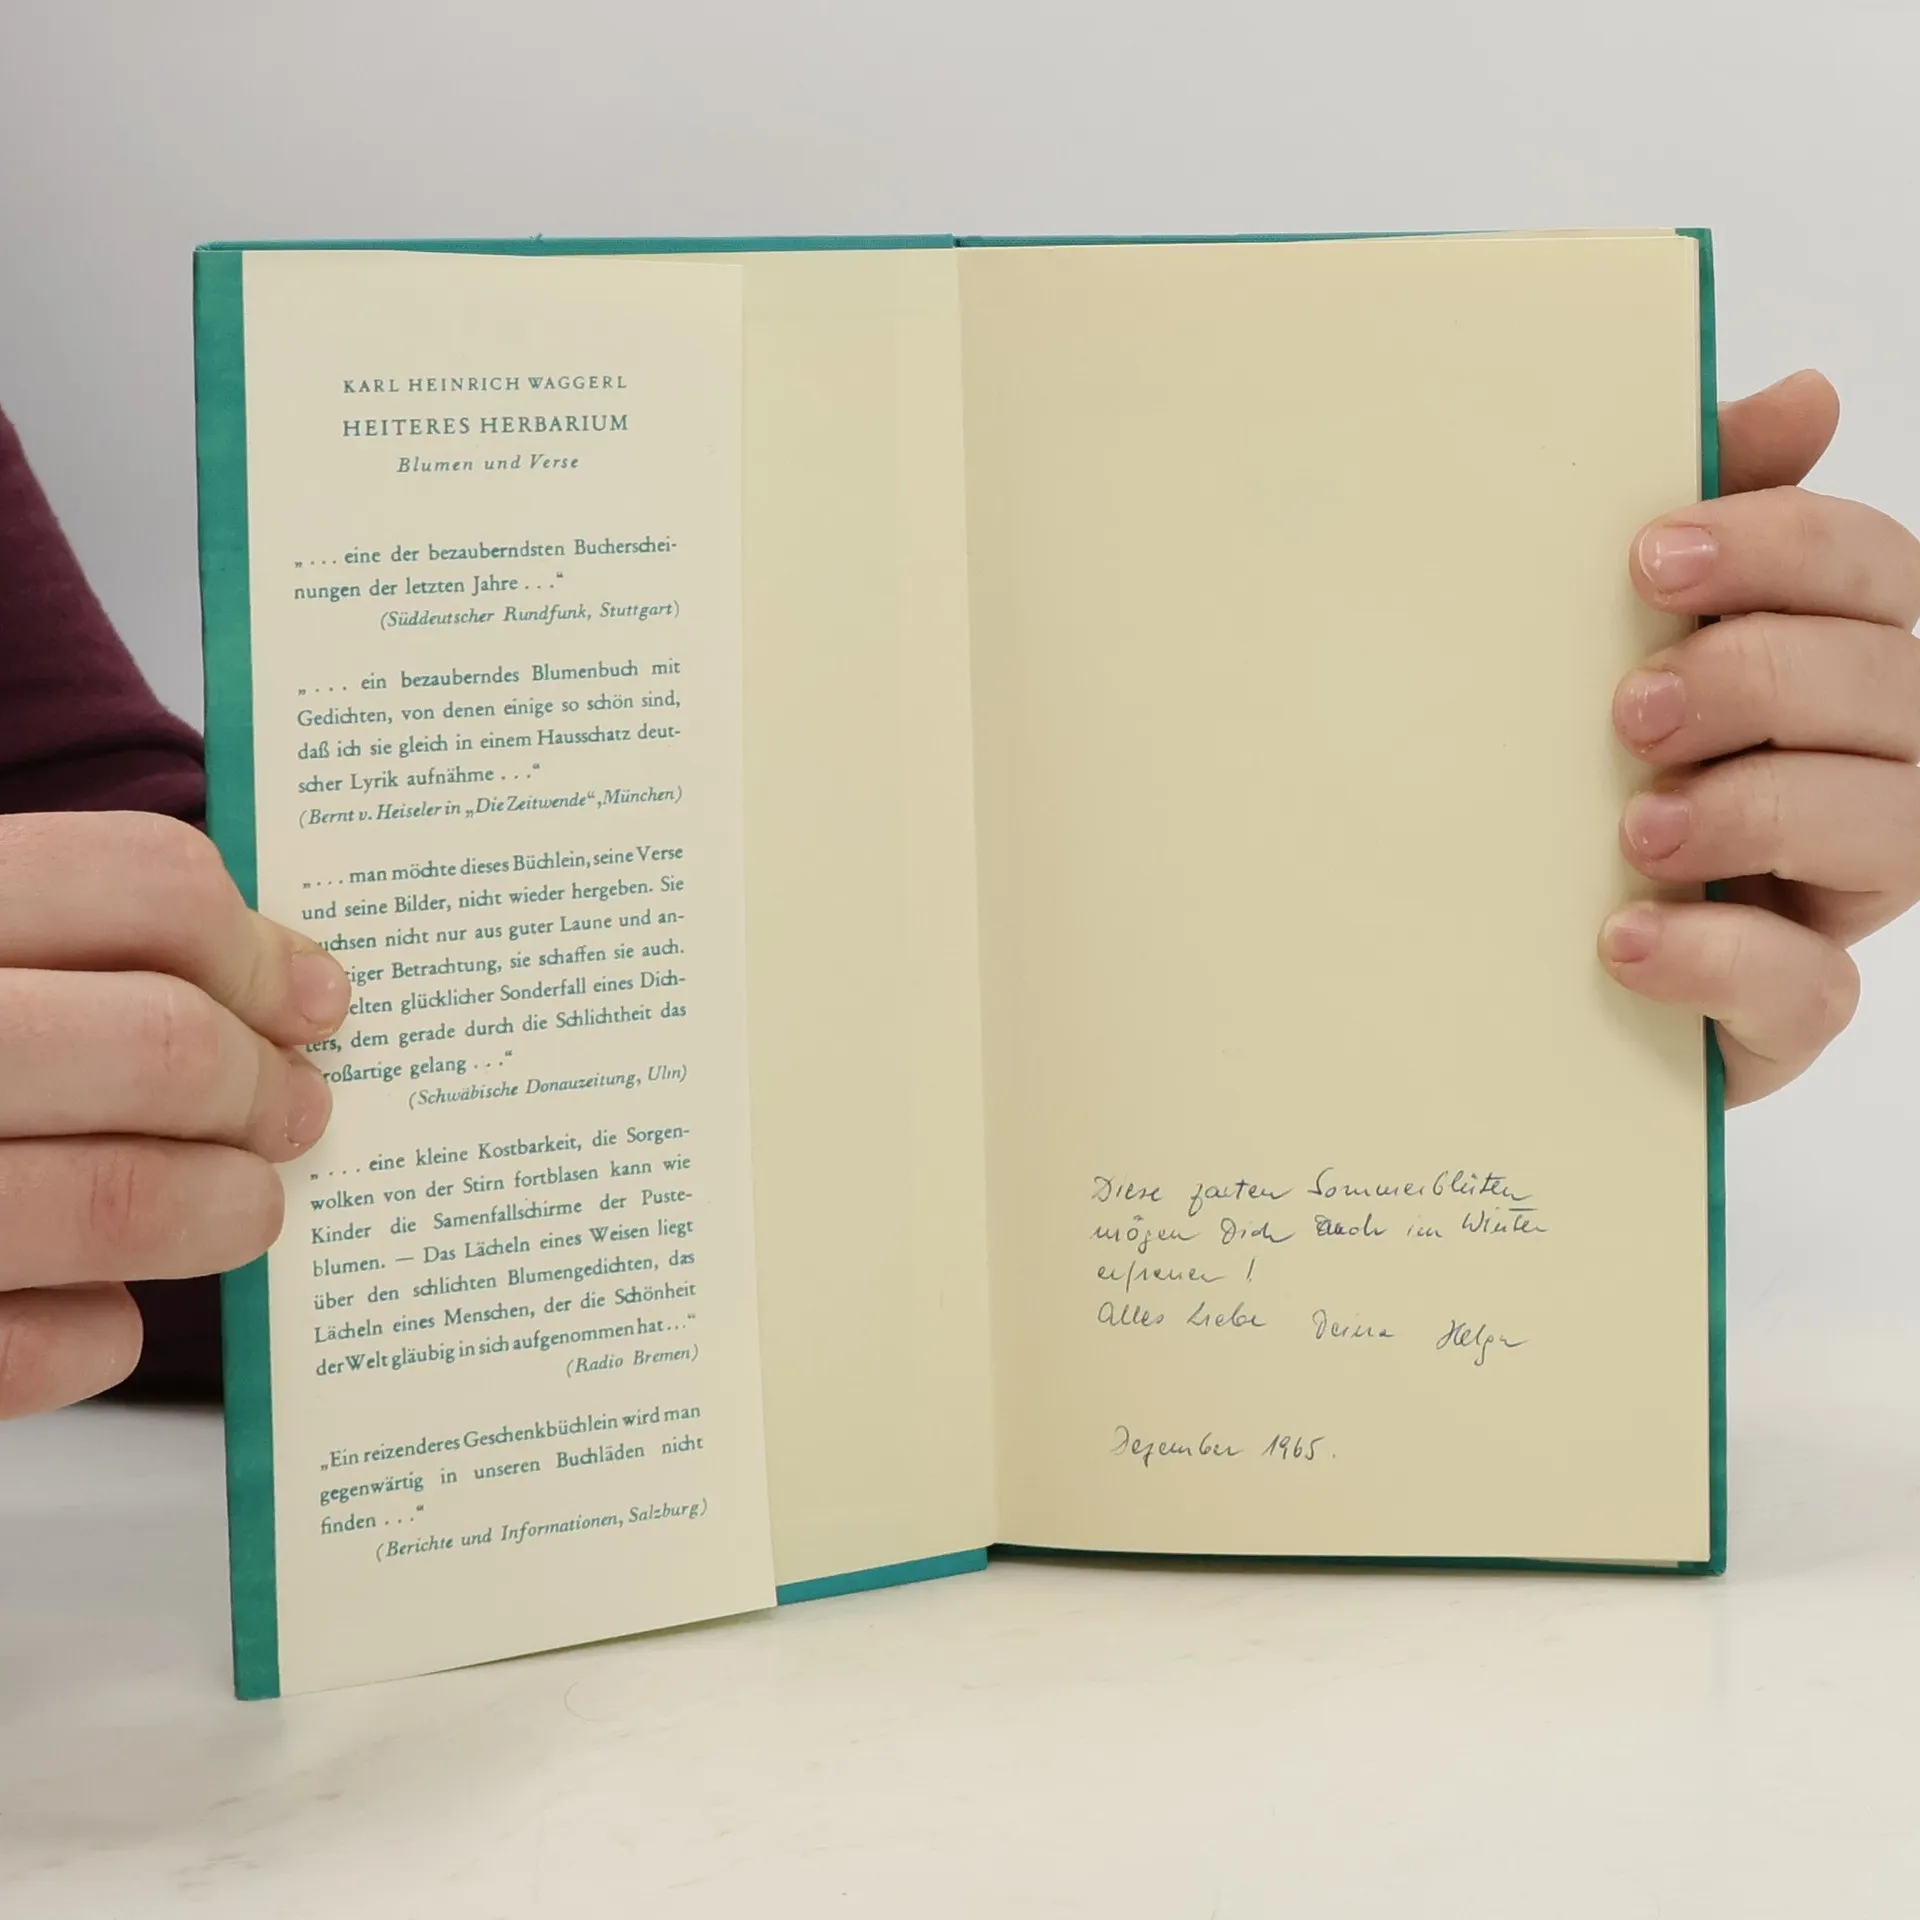 KARL HEINRICH WAGGERL
HEITERES HERBARIUM
Blumen und Verse
„... eine der bezauberndsten Bucherschei-
nungen der letzten Jahre ...“
(Süddeutscher Rundfunk, Stuttgart)
„... ein bezauberndes Blumenbuch mit
Gedichten, von denen einige so schön sind,
daß ich sie gleich in einem Hausschatz deut-
scher Lyrik aufnähme ...“
(Bernt v. Heiseler in „Die Zeitwende“, München)
„... man möchte dieses Büchlein, seine Verse
und seine Bilder, nicht wieder hergeben. Sie
uchsen nicht nur aus guter Laune und an-
tiger Betrachtung, sie schaffen sie auch.
elten glücklicher Sonderfall eines Dich-
ters, dem gerade durch die Schlichtheit das
roßartige gelang ...“
(Schwäbische Donauzeitung, Ulm)
„... eine kleine Kostbarkeit, die Sorgen-
wolken von der Stirn fortblasen kann wie
Kinder die Samenfallschirme der Puste-
blumen. — Das Lächeln eines Weisen liegt
über den schlichten Blumengedichten, das
Lächeln eines Menschen, der die Schönheit
der Welt gläubig in sich aufgenommen hat ...“
(Radio Bremen)
„Ein reizenderes Geschenkbüchlein wird man
gegenwärtig in unseren Buchläden nicht
finden ...“
(Berichte und Informationen, Salzburg)
Diese zarten Sommerblüten
mögen Dich auch im Winter
erfreuen !
Alles Liebe Deine Helga
Dezember 1965.